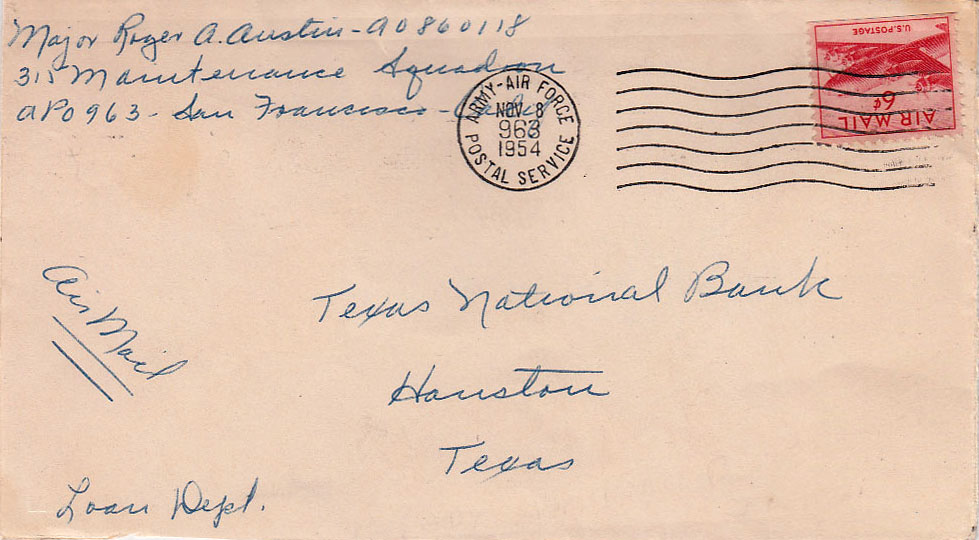 Major Roger A. Austin - AO860118
315 Maintenance Squadron
APO 963 - San Francisco - Calif
ARMY-AIR FORCE
NOV 8
963
1954
POSTAL SERVICE
U.S. POSTAGE
6¢
AIR MAIL
Air Mail
Texas National Bank
Houston
Texas
Loan Dept.